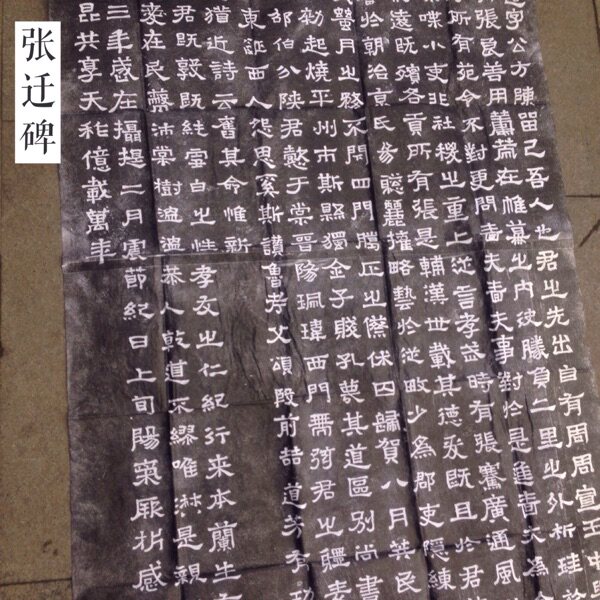 字公方陳留己吾人也君之先出自有周周宣王中興
張良善用籌策在帷幕之內決勝負千里之外析珪於
所有苑令不對更問嗇夫嗇夫事對於是進嗇夫為
喋小吏非社稷之重上從言孝武時有張騫廣通風
遠既殯各貢所有張是輔漢世載其德爰既且於君
於朝治京氏易聰麗權略藝於從畋少為郡吏隱練
蠶月之務不閉四門臘正之祭休囚歸賀八月筭民
初起燒平城市斯縣獨全子賤孔蔑其道區別尚書
邵伯分陝君懿于棠晉陽珮瑋西門帶弦君之體素
東征西人怨思奚斯讚魯考父頌殷前喆遺芳有功
猶近詩云舊國其命惟新
君既敦既純雪白之性孝友之仁紀行來本蘭生有
愛在民蔽沛棠樹溫溫恭人乾道不繆唯淑是親
三年歲在攝提二月震節紀日上旬陽氣厥析感
共享天祚億載萬年
张迁碑